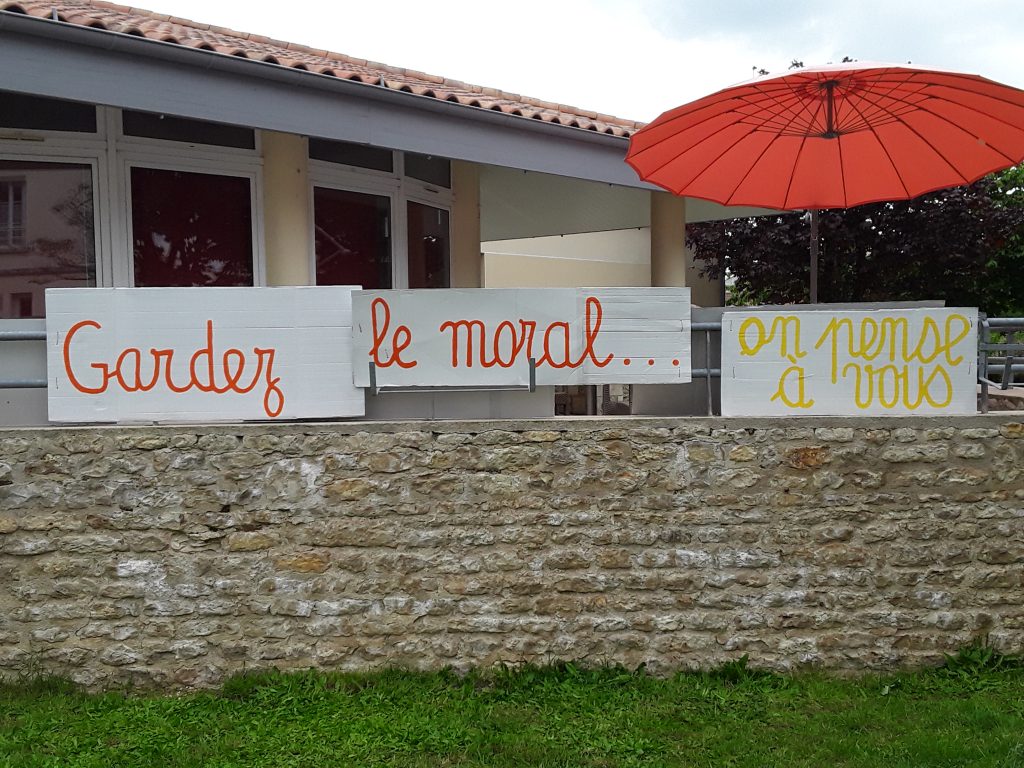 Gardez le moral...
on pense
à vous